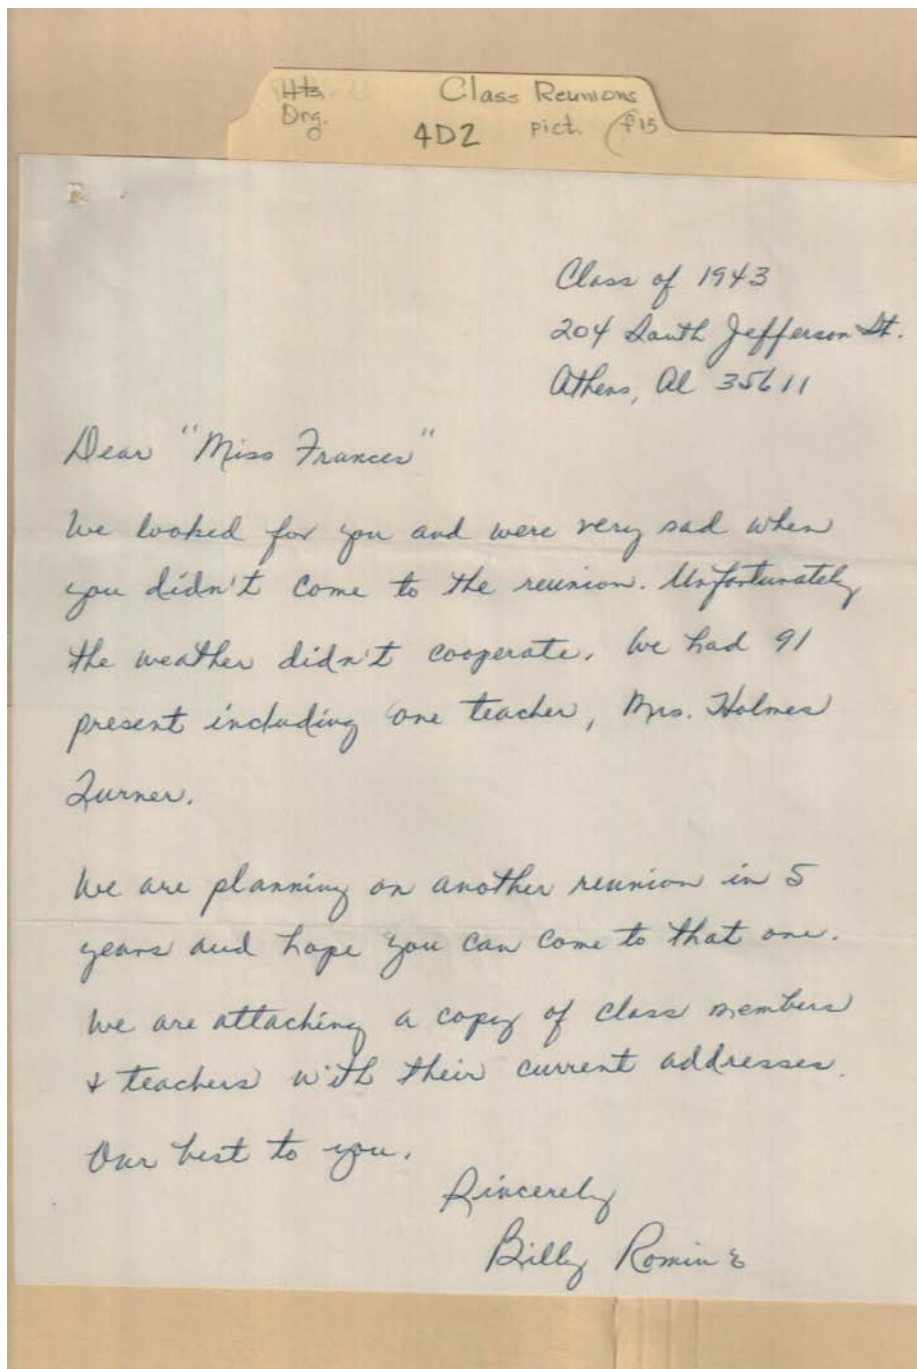 Hts Class Reunions
Org. 4D2 pict. f15
Class of 1943
204 South Jefferson St.
Athens, Al 35611
Dear "Miss Frances"
We looked for you and were very sad when
you didn't come to the reunion. Unfortunately
the weather didn't cooperate. We had 91
present including one teacher, Mrs. Holmes
Turner.
We are planning on another reunion in 5
years and hope you can come to that one.
We are attaching a copy of class members
& teachers with their current addresses.
Our best to you.
Sincerely
Billy Romine